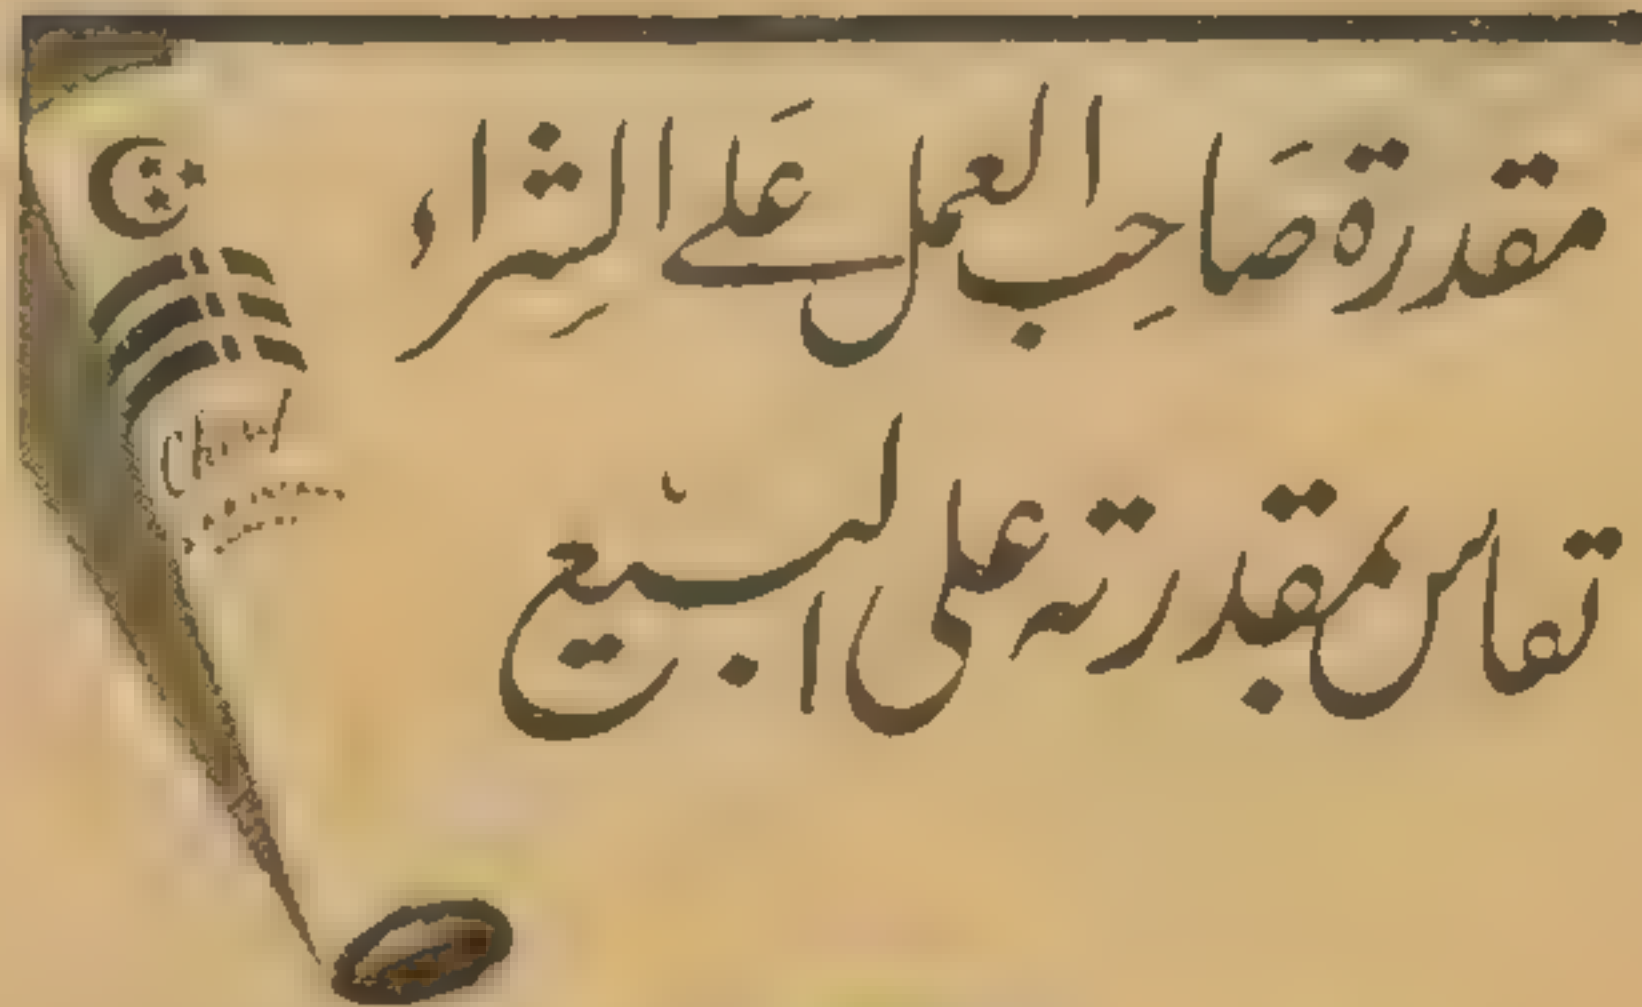 مقدرة صَاحِب العمل عَلى الشِراء
تقاس بمقدرته على البيع